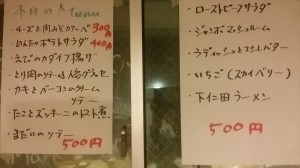 本日の Menu
・チーズと肉みそカナーペ 300円
・かんたんポテトサラダ 400円
・えびのカダイフ揚げ
・とり肉のソテー
・カキとベーコンのクリーム
ソテー
・たことズッキーニのトマト煮
・まだいのソテー
500円
・ローストビーフサラダ
・ジャンボマッシュルーム
・ラディッシュとエシレバター
・いちご(スカイベリー)
・下仁田ラーメン
500円